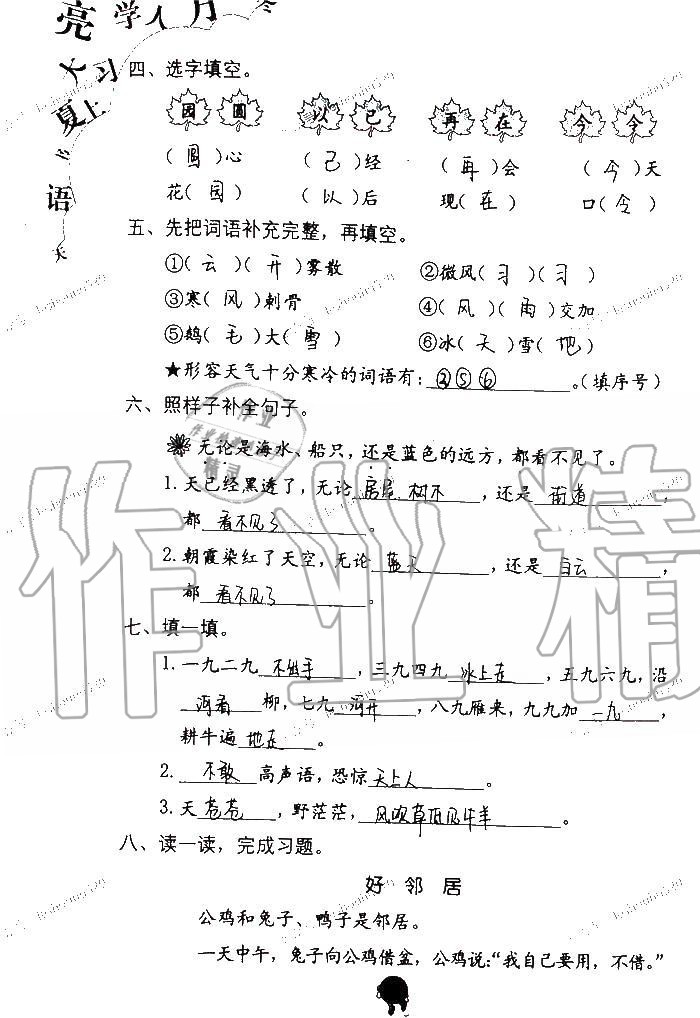 亮学人月冬
大习
夏上
语
天
四、选字填空。
园 圆 以 已 再 在 今 令
（圆）心 （已）经 （再）会 （今）天
花（园） （以）后 现（在） 口（令）
五、先把词语补充完整，再填空。
①（云）（开）雾散 ②微风（习）（习）
③寒（风）刺骨 ④（风）（雨）交加
⑤鹅（毛）大（雪） ⑥冰（天）雪（地）
★形容天气十分寒冷的词语有：③⑤⑥。（填序号）
六、照样子补全句子。
无论是海水、船只，还是蓝色的远方，都看不见了。
1.天已经黑透了，无论房屋 树木，还是街道，
都看不见了。
2.朝霞染红了天空，无论蓝天，还是白云，
都看不见了。
七、填一填。
1.一九二九不出手，三九四九冰上走，五九六九，沿
河看柳，七九河开，八九雁来，九九加一九，
耕牛遍地走。
2.不敢高声语，恐惊天上人。
3.天苍苍，野茫茫，风吹草低见牛羊。
八、读一读，完成习题。
好邻居
公鸡和兔子、鸭子是邻居。
一天中午，兔子向公鸡借盆，公鸡说：“我自己要用，不借。”
作业精